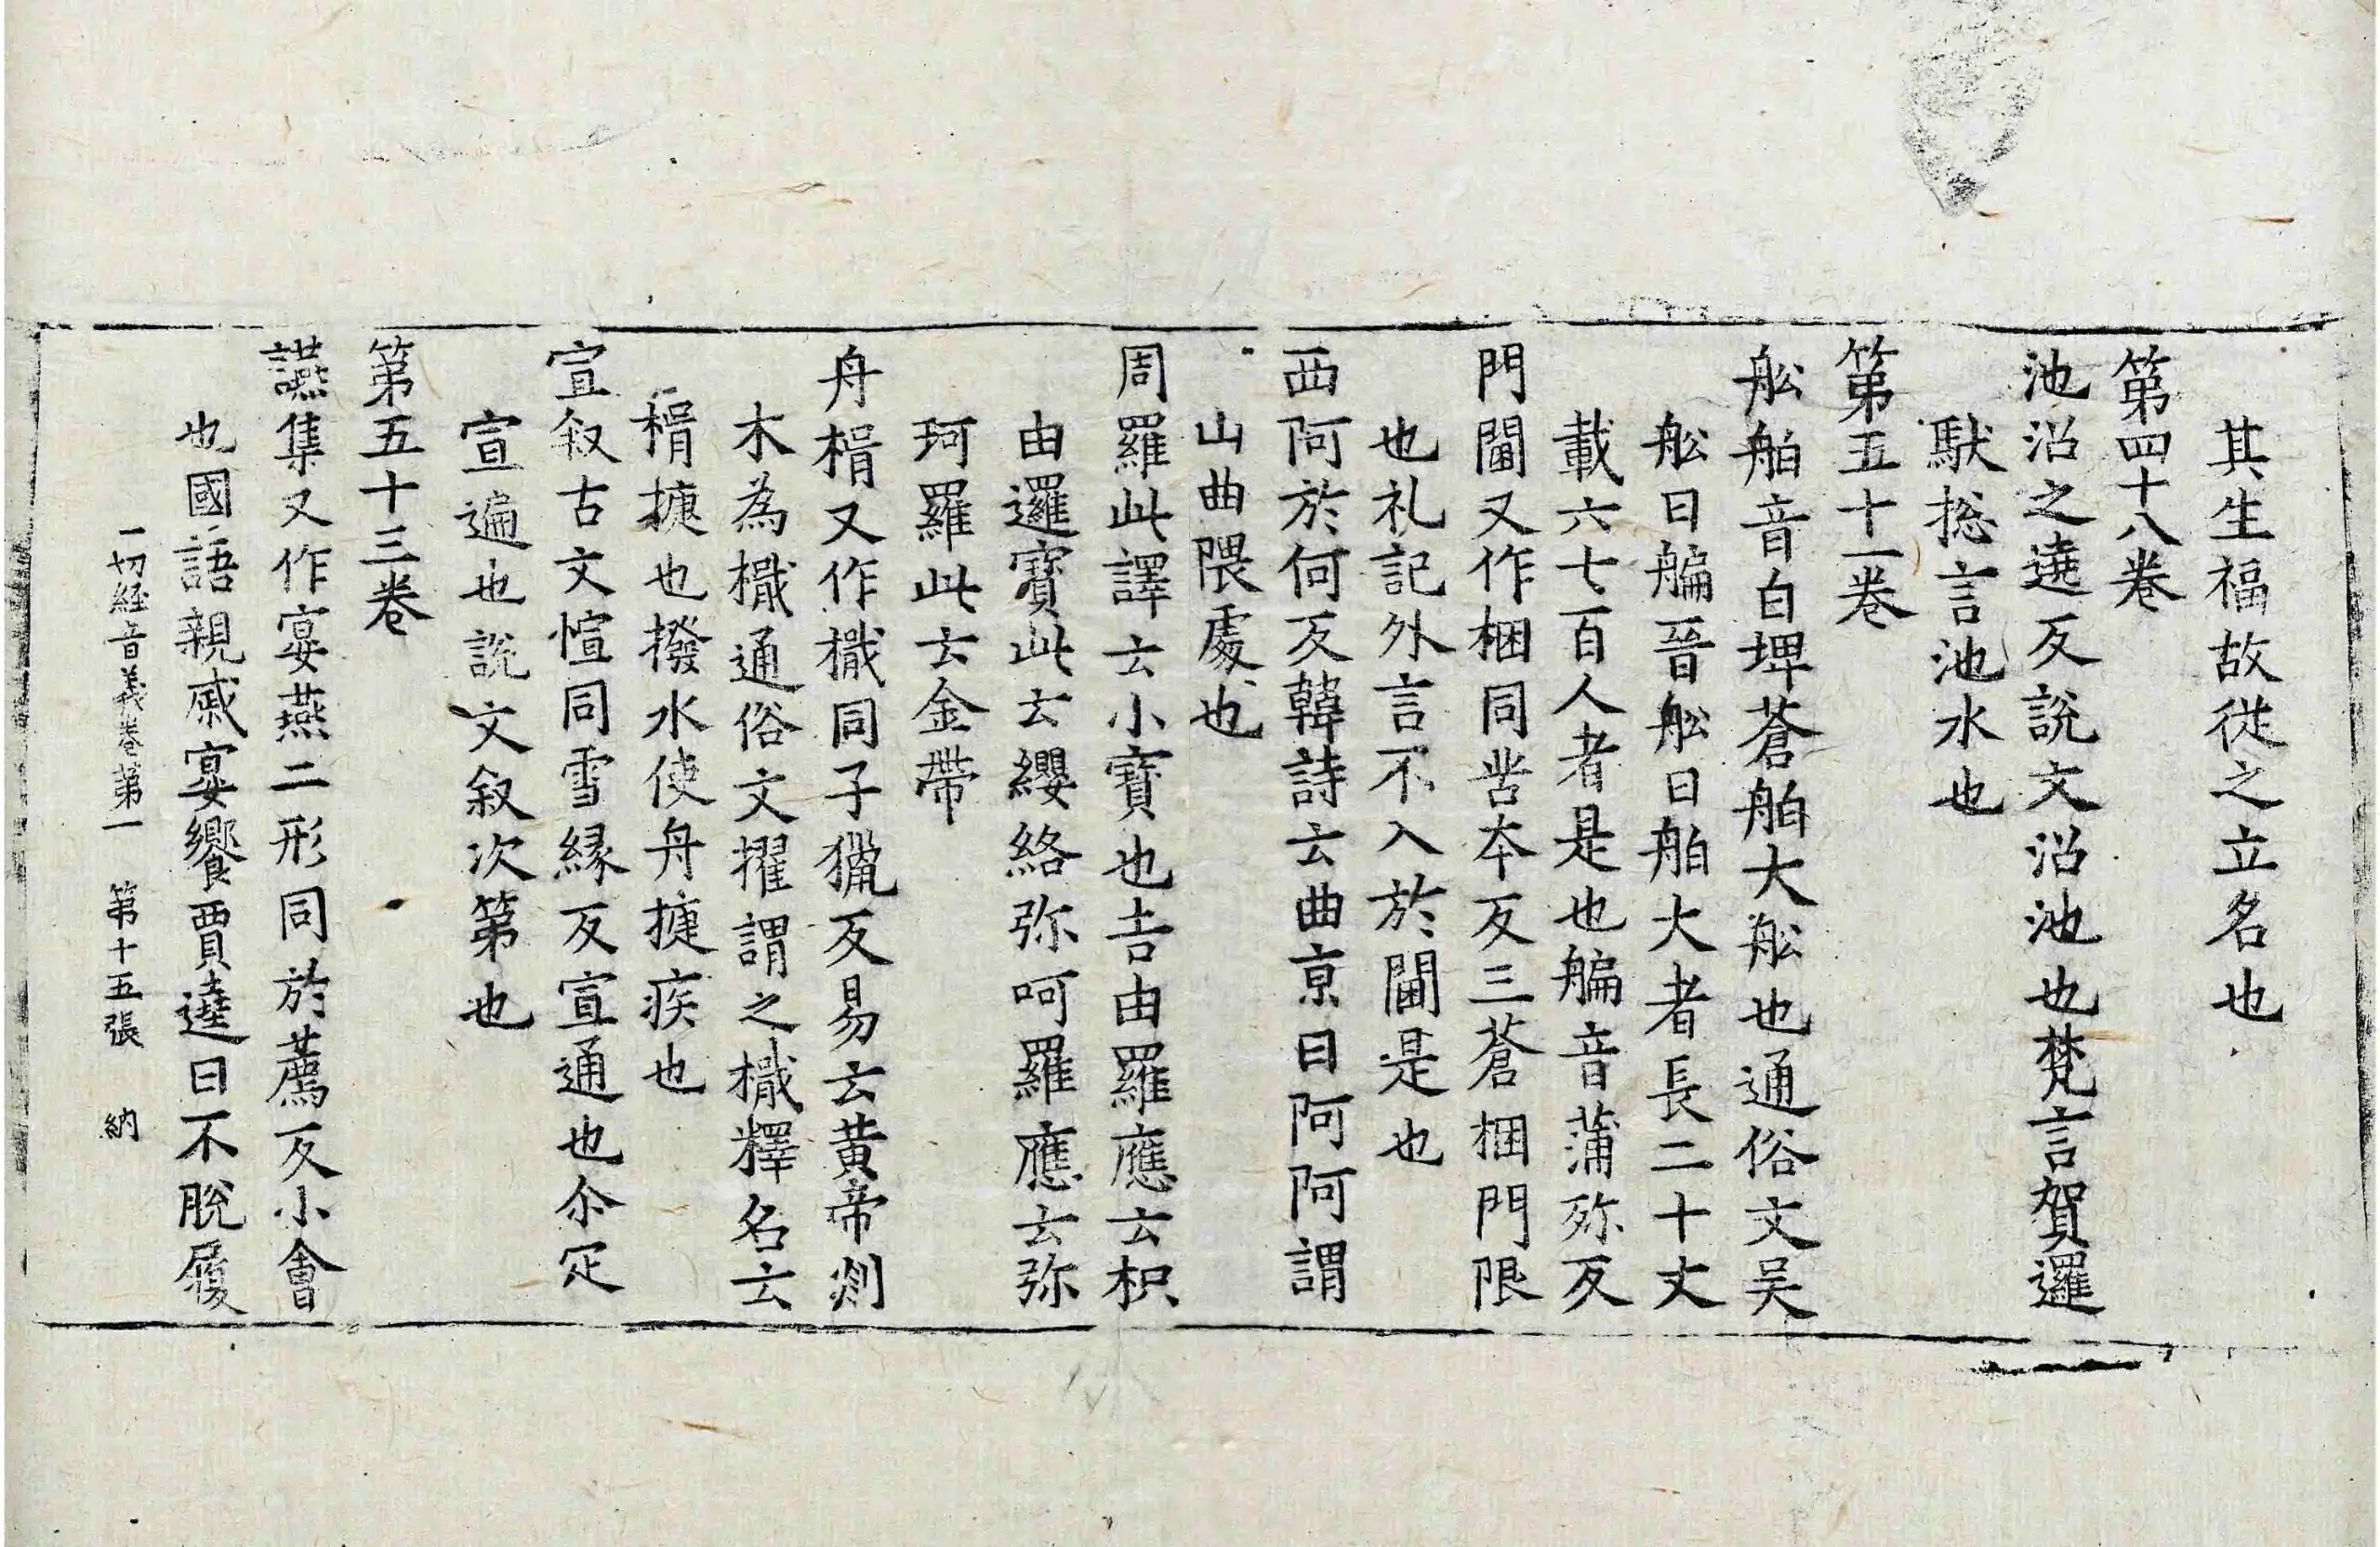 其生福故從之立名也
第四十八卷
池沼之遶反說文沼池也梵言賀邏
馱捴言池水也
第五十一卷
舩舶音白埤蒼舶大舩也通俗文吴
舩曰艑晉舩曰舶大者長二十丈
載六七百人者是也艑音蒲殄反
門閫又作梱同苦本反三蒼梱門限
也礼記外言不入於閫是也
西阿於何反韓詩云曲京曰阿阿謂
山曲隈處也
周羅此譯云小寶也吉由羅應云枳
由邏寶此云纓絡弥呵羅應云弥
珂羅此云金帶
舟楫又作檝同子獵反易云黄帝刾
木為檝通俗文擢謂之檝釋名云
楫㨗也撥水使舟㨗疾也
宣叙古文愃同雪縁反宣通也尒疋
宣遍也說文叙次第也
第五十三卷
讌集又作宴燕二形同於薦反小會
也國語親戚宴饗賈逵曰不脫屨
一切経音義卷第一 第十五張 納